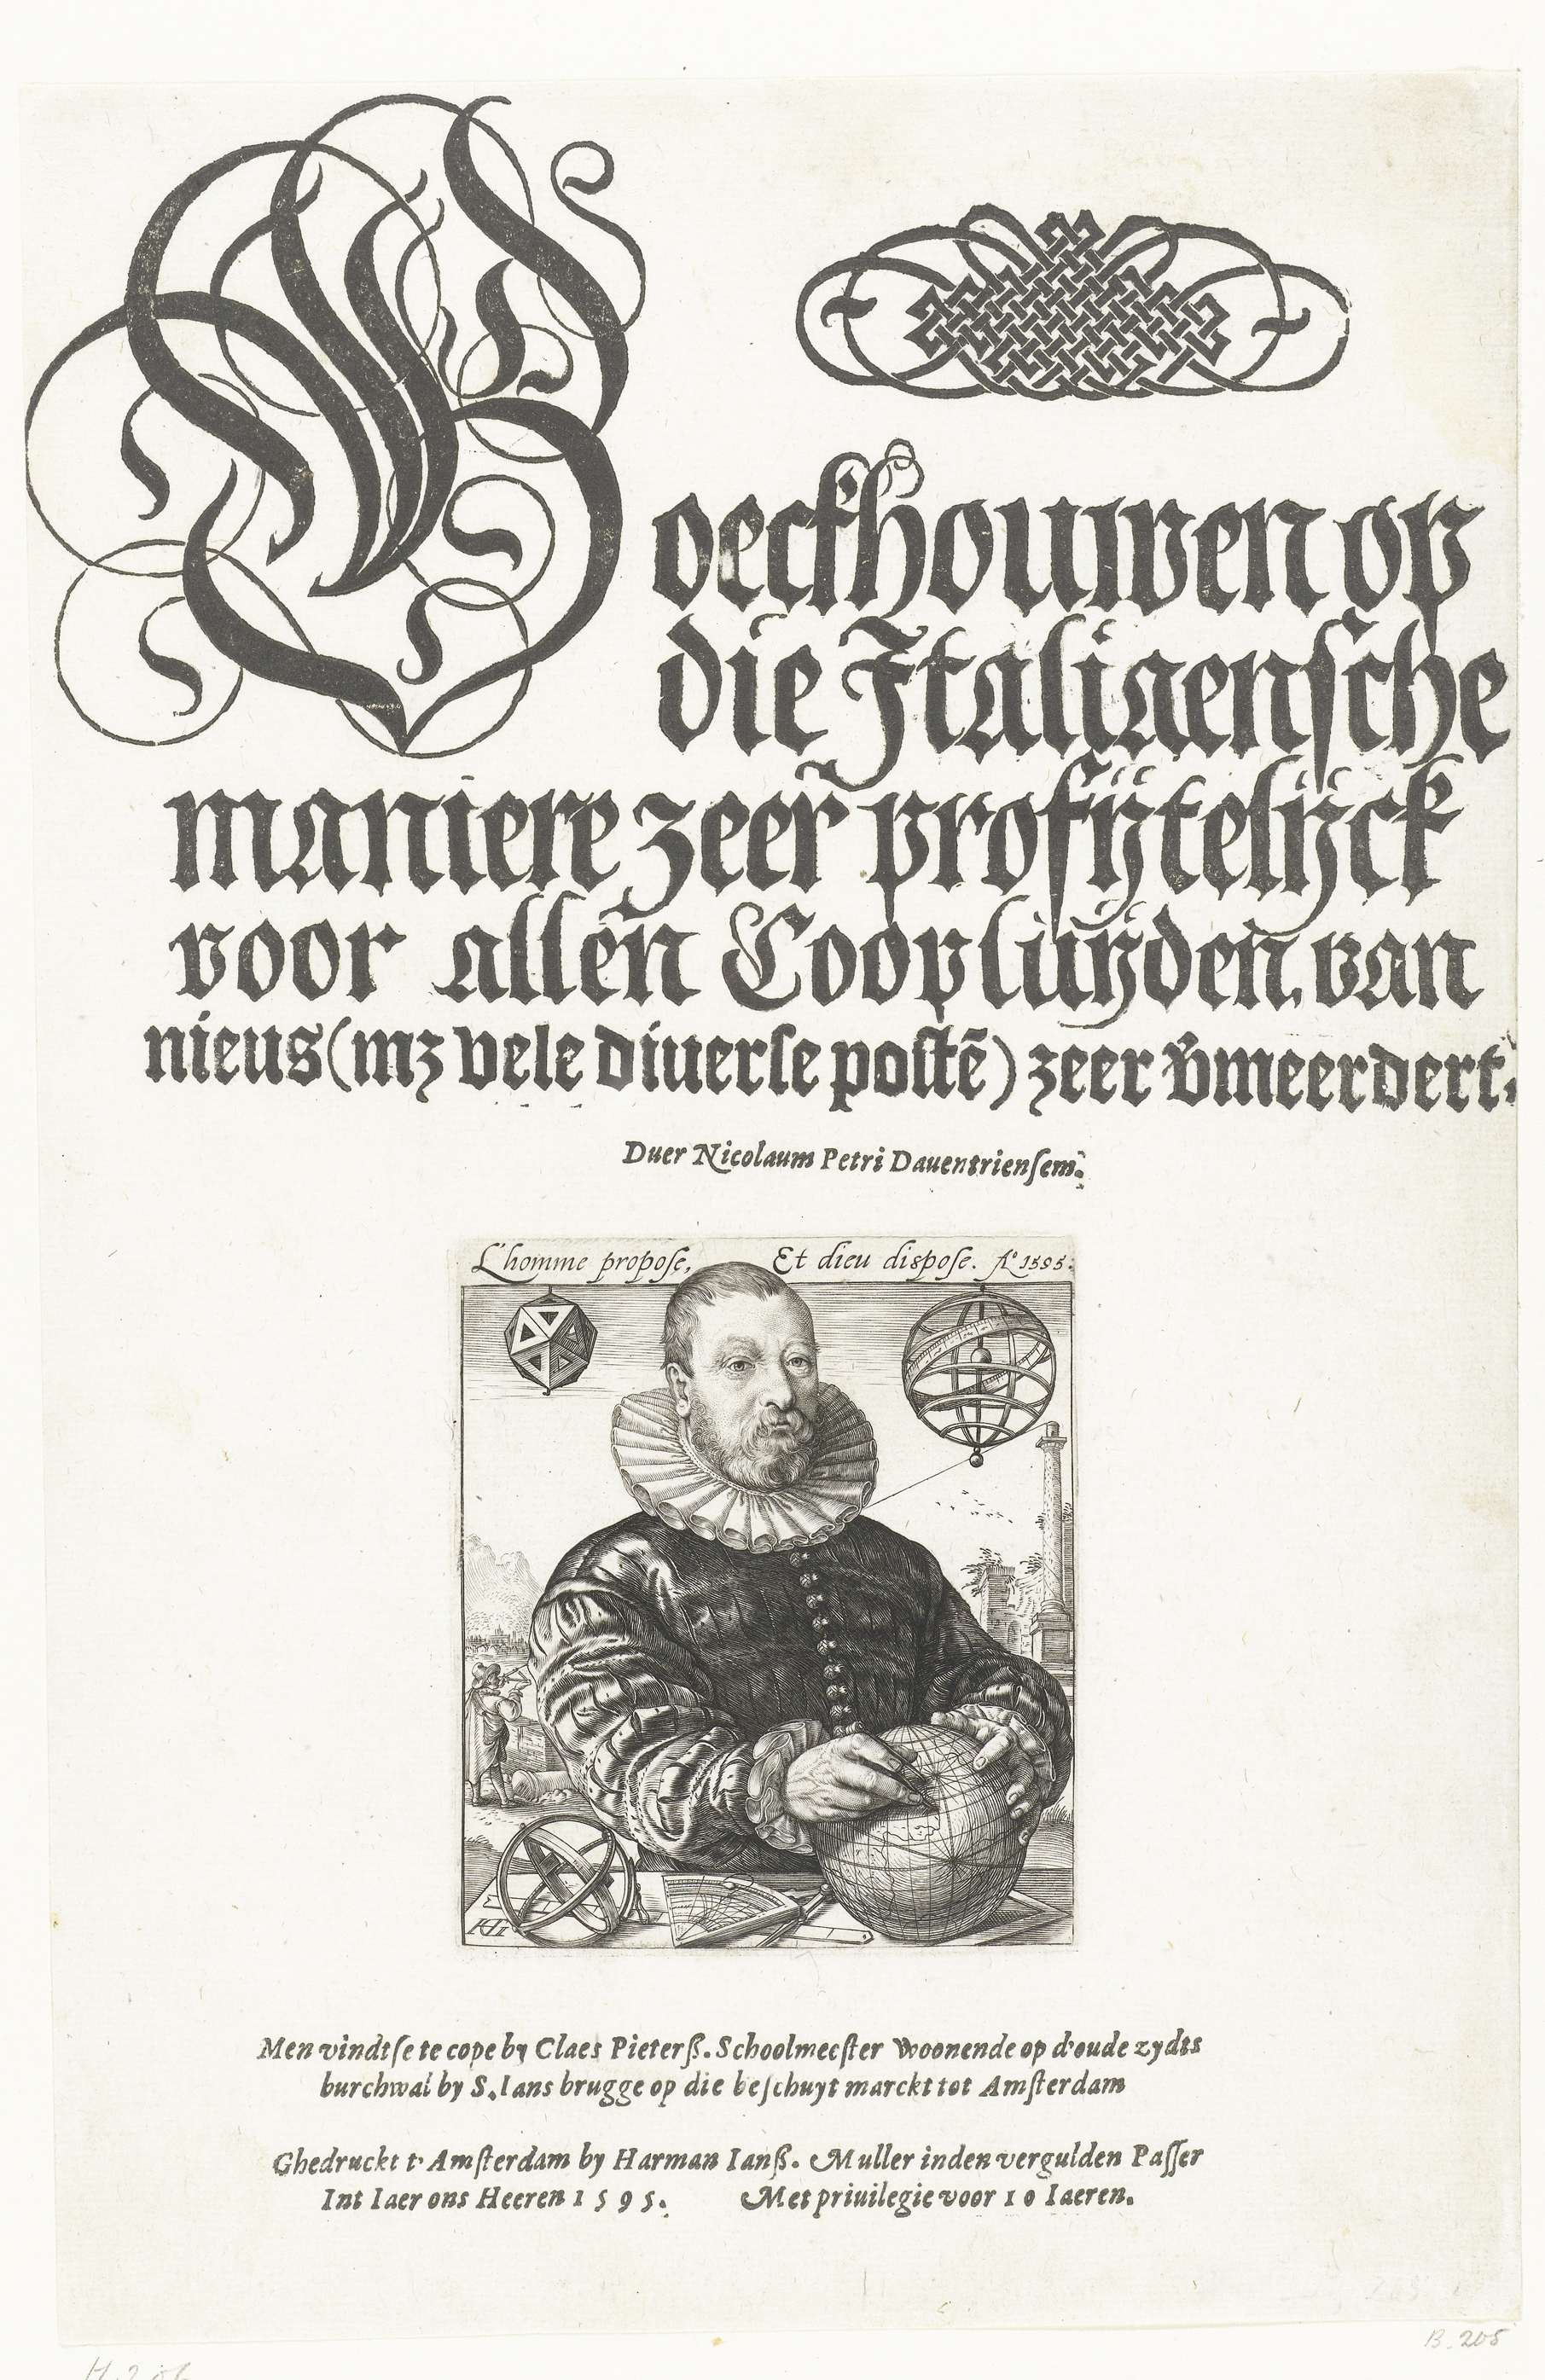 Boeckhouwen op
die Italiaensche
maniere zeer profijtelijck
voor allen Coopluijden, van
nieus (mz vele diuerse postē) zeer v̄meerdert.
Duer Nicolaum Petri Dauentriensem.
L'homme propose, Et dieu dispose. Aº 1595.
HG
Men vindtse te cope by Claes Pieterß. Schoolmeester woonende op d'oude zydts
burchwal by S. Ians brugge op die beschuyt marckt tot Amsterdam
Ghedruckt t' Amsterdam by Harman Ianß. Muller inden vergulden Passer
Int Iaer ons Heeren 1595. Met priuilegie voor 10 Iaeren.
B. 205